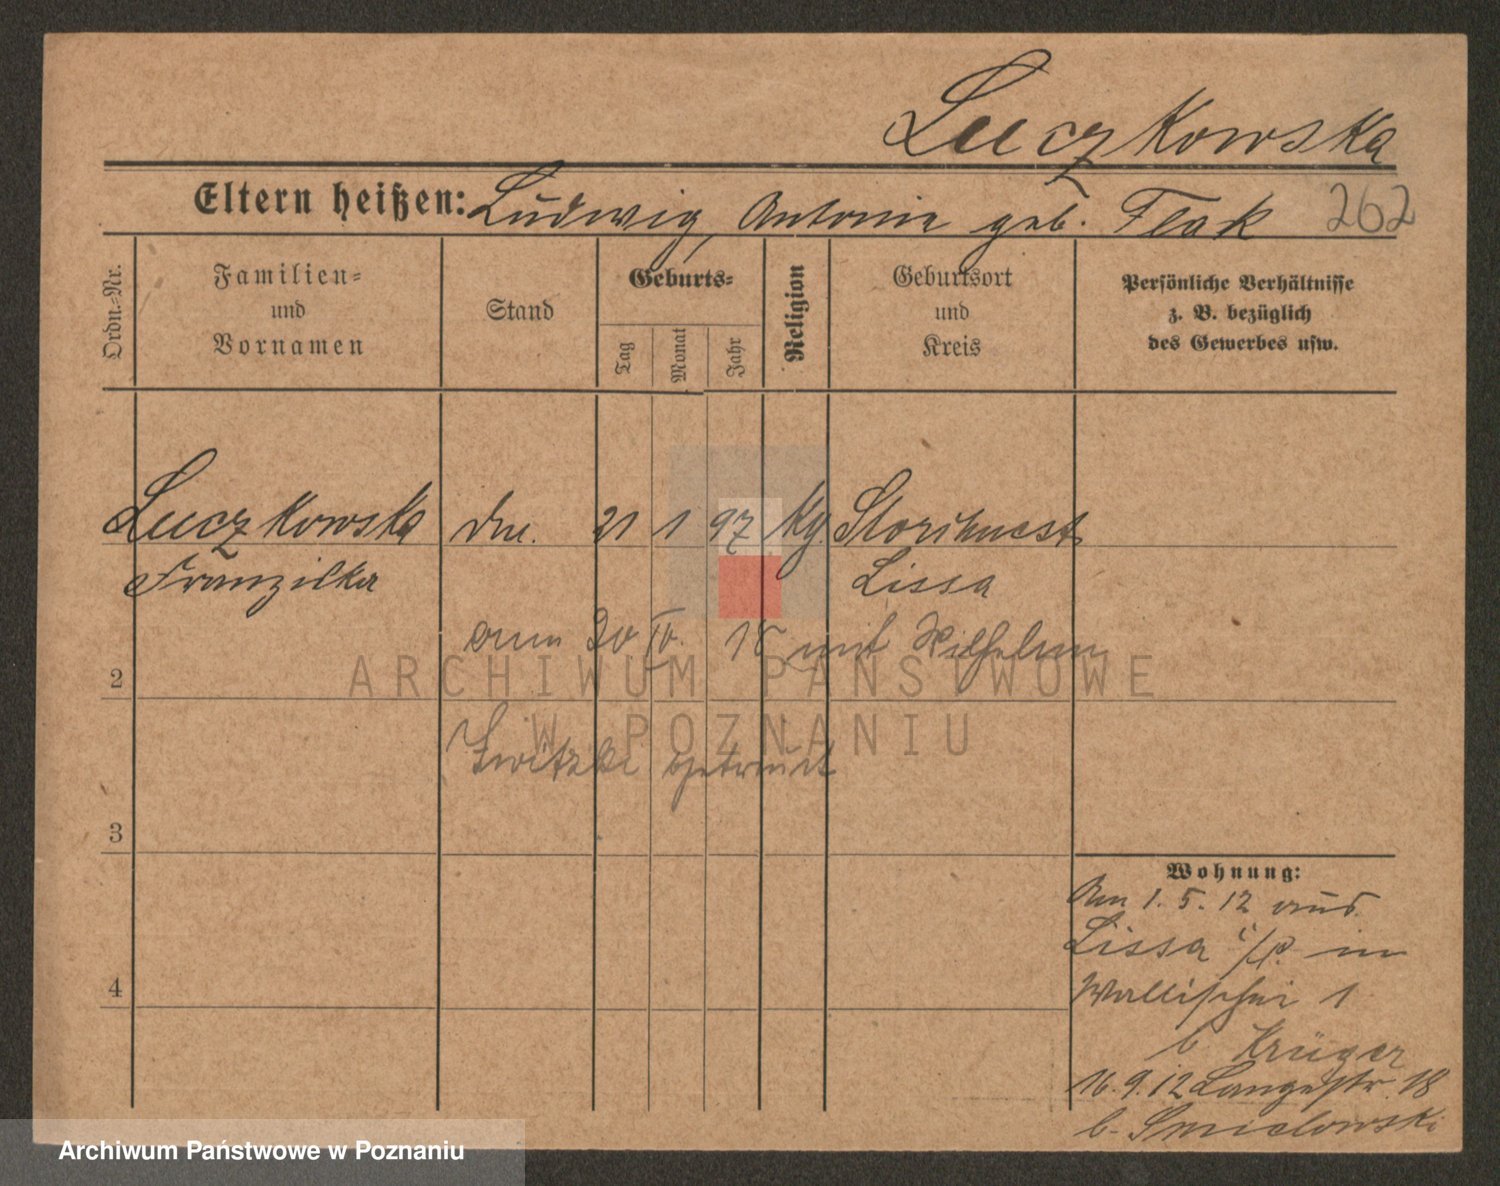 Luczkowska
Eltern heißen: Ludwig, Antonie geb. Flak 262
Ordn.-Nr.
Familien-
und
Vornamen
Stand
Geburts-
Tag
Monat
Jahr
Religion
Geburtsort
und
Kreis
Persönliche Verhältnisse
z. B. bezüglich
des Gewerbes usw.
Luczkowska 21 1 97 Storchnest
Franziska Lissa
mit Wilhelm
2
getraut
3
4
Wohnung:
Am 1. 5. 12 aus
Lissa i/P. in
Wallischei 1
b Krüger
16. 9. 12 Langestr. 18
b. Smialowski
ARCHIWUM PAŃSTWOWE
W POZNANIU
Archiwum Państwowe w Poznaniu